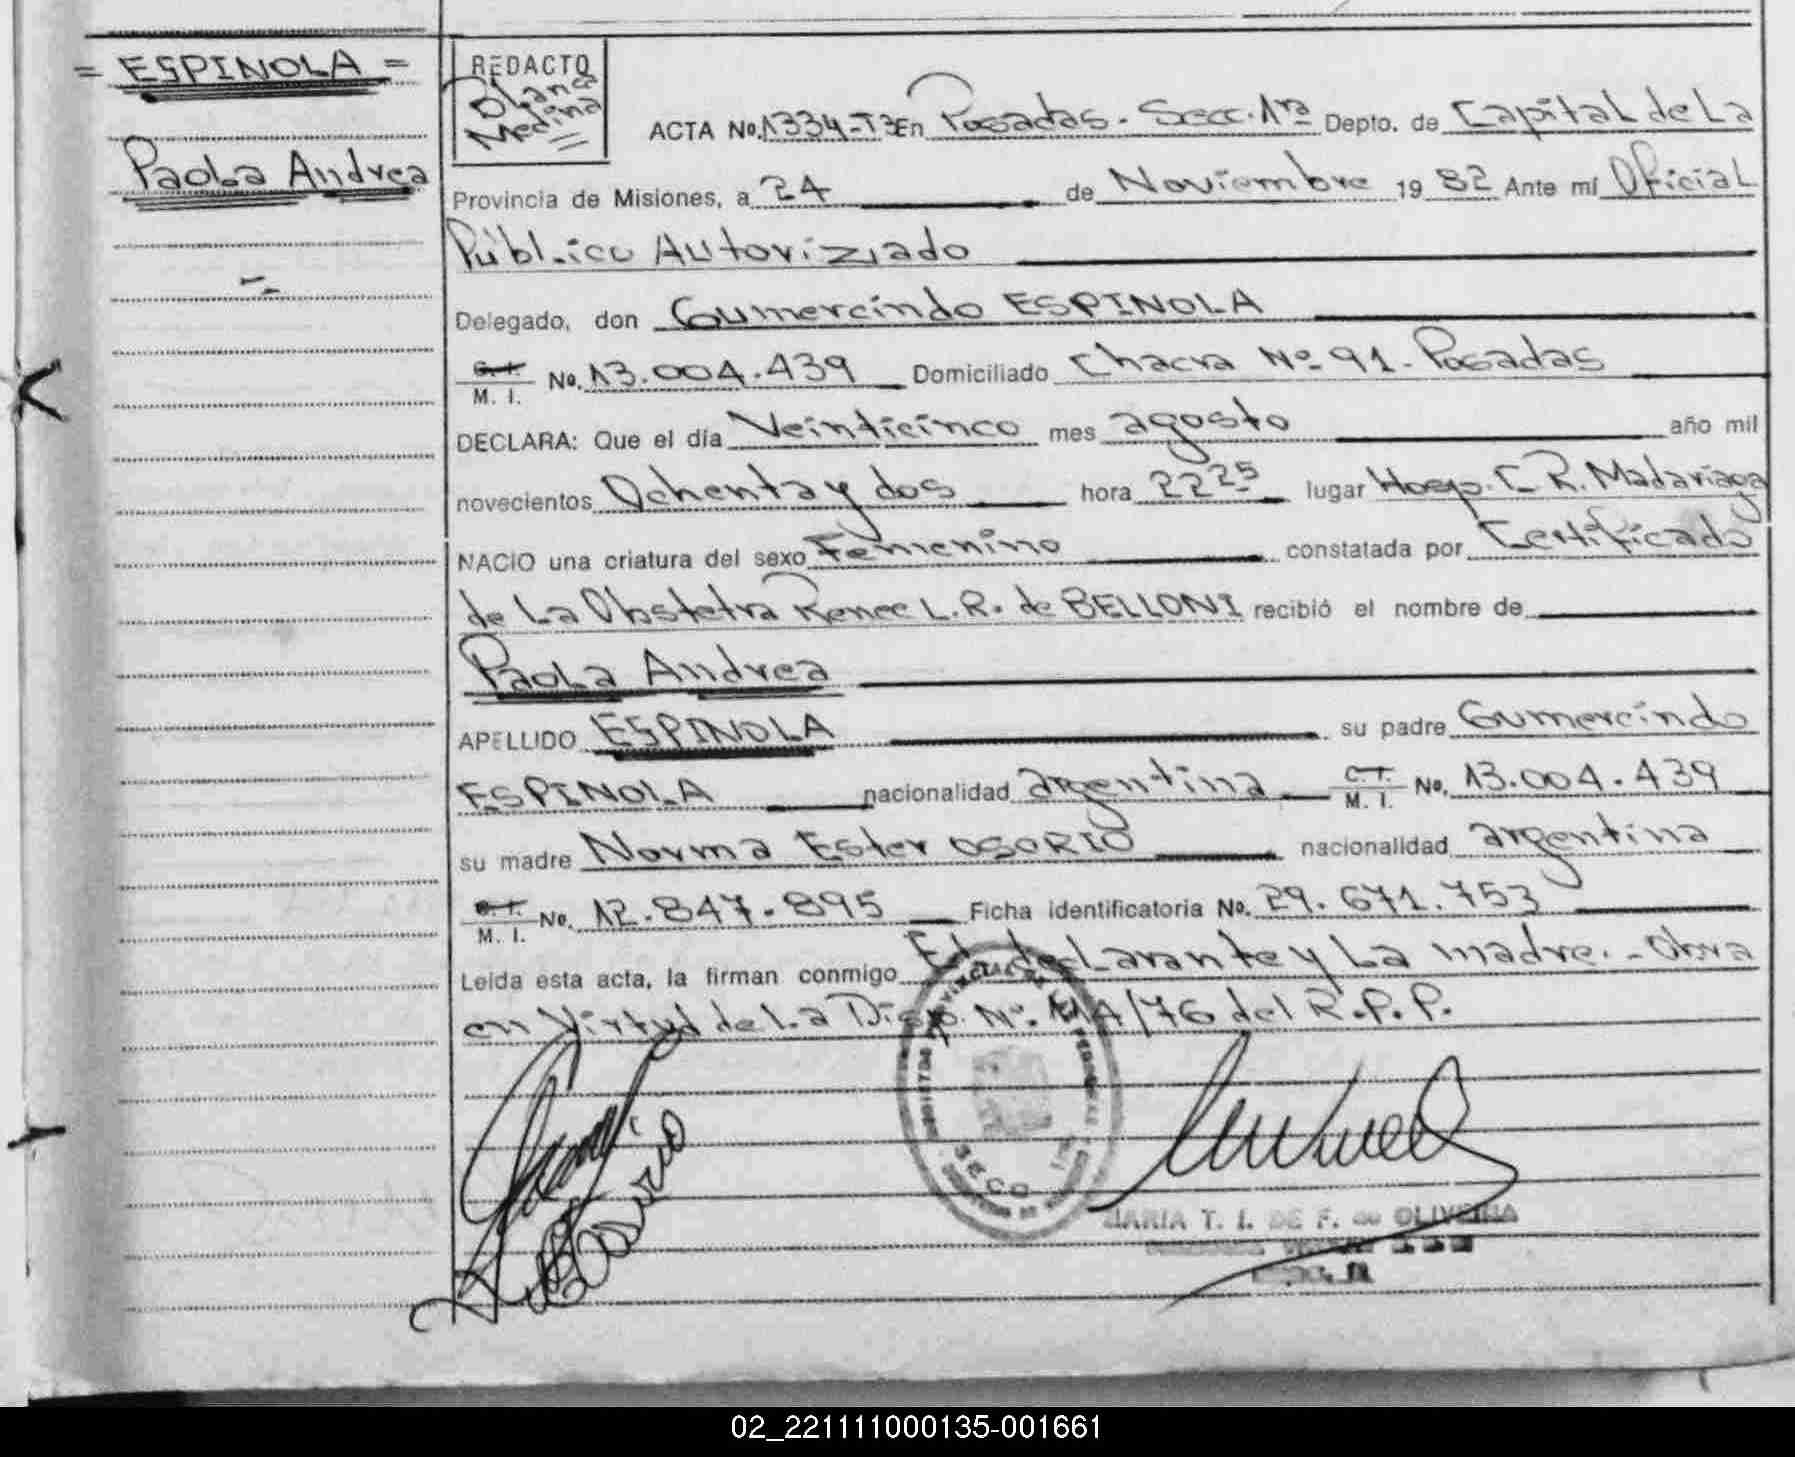 = ESPINOLA =
Paola Andrea
REDACTO
Blanca
Medina
ACTA No. 1334-T3 En Posadas. Secc. 1ra Depto. de Capital de La
Provincia de Misiones, a 24 de Noviembre 19 82 Ante mí Oficial
Público Autorizado
Delegado, don Gumercindo ESPINOLA
C. I.
M. I. No. 13.004.439 Domiciliado Chacra Nº 91. Posadas
DECLARA: Que el día Veinticinco mes agosto año mil
novecientos Ochenta y dos hora 22 25 lugar Hosp. C. R. Madariaga
NACIO una criatura del sexo Femenino constatada por Certificado
de La Obstetra Renee L. R. de BELLONI recibió el nombre de
Paola Andrea
APELLIDO ESPINOLA su padre Gumercindo
ESPINOLA nacionalidad argentina C. I. M. I. No. 13.004.439
su madre Norma Ester OSORIO nacionalidad argentina
C. I.
M. I. No. 12.847.895 Ficha identificatoria No. 29.671.753
Leída esta acta, la firman conmigo El declarante y La madre. - Obra
en Virtud de La Disp. Nº /76 del R.P.P.
SECC
Osorio
MARIA T. I. DE F. de OLIVEIRA
02_221111000135-001661